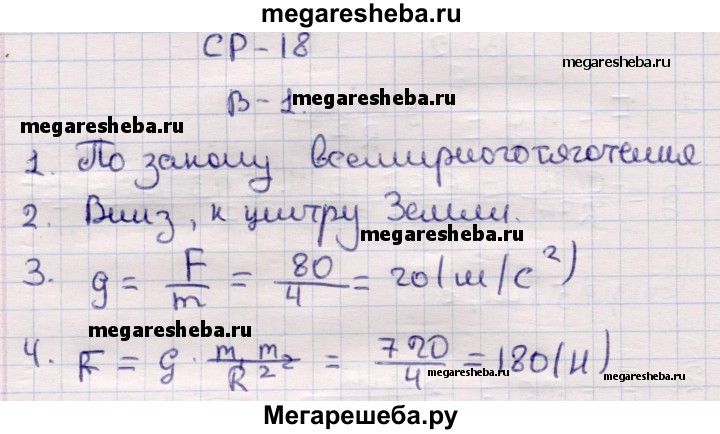 megaresheba.ru
СР-18
megaresheba.ru
В-1.
megaresheba.ru
megaresheba.ru
1. По закону всемирного тяготения
2. Вниз, к центру Земли.
megaresheba.ru
3. g = F/m = 80/4 = 20 (м/с²)
megaresheba.ru
4. F = G · m₁m₂/R² = 720/4 = 180 (Н)
megaresheba.ru
megaresheba.ru
Мегарешеба.ру